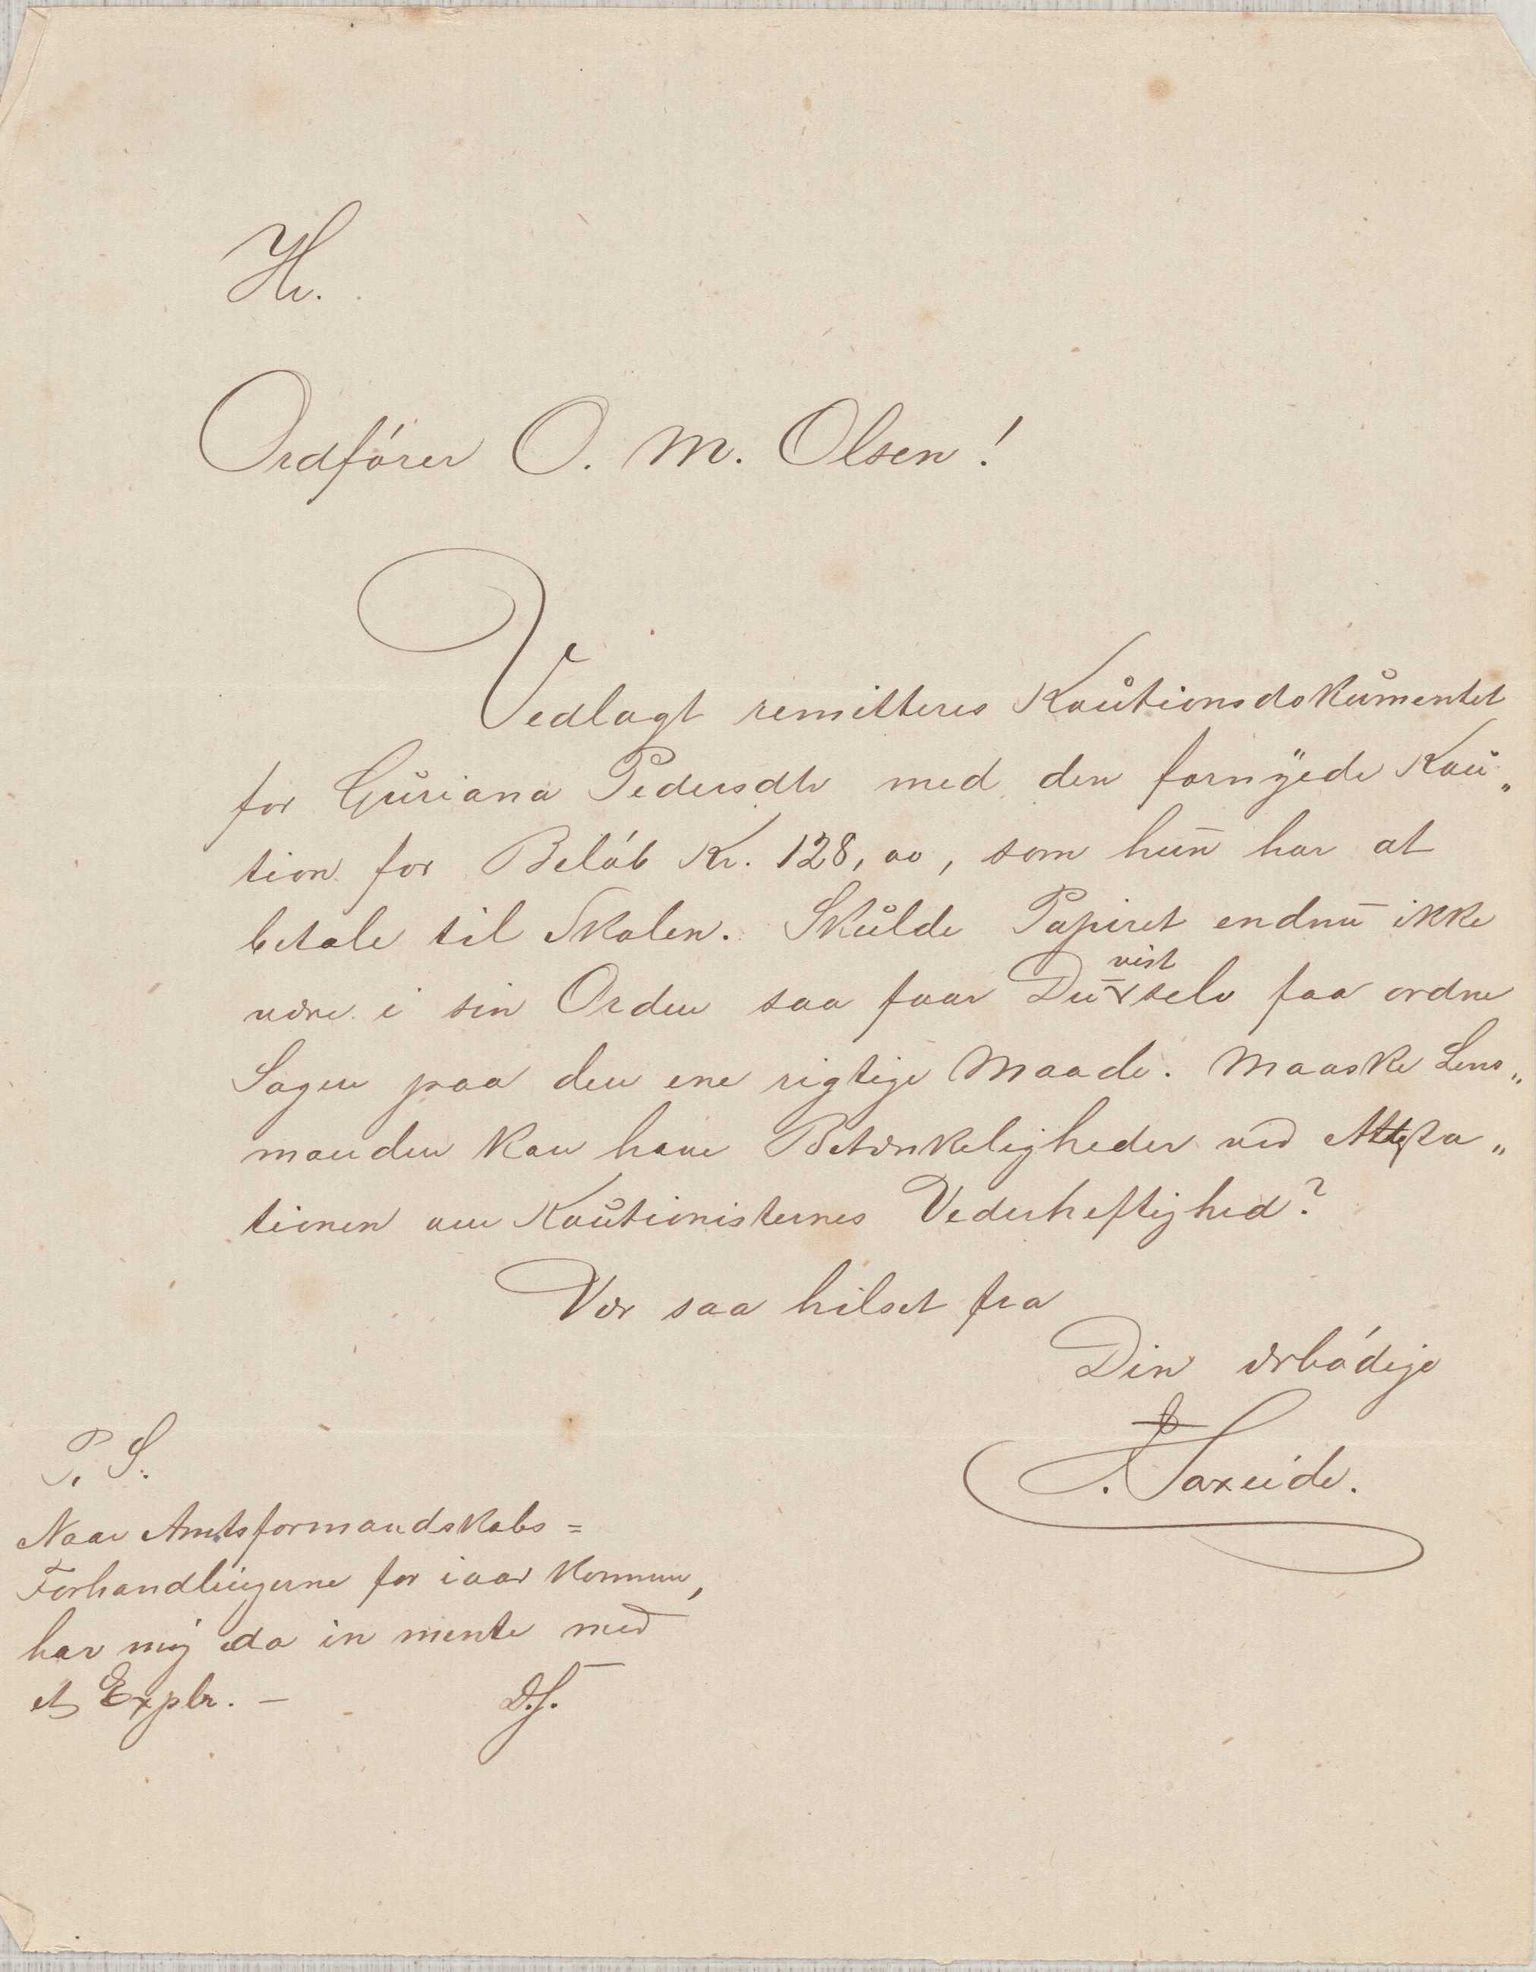 Hr.
Ordfórer O. M. Olsen!
Vedlagt remitteres Kautionsdokumentet
for Guriana Pedersdtr med den fornÿede Kau„
tion for Belób Kr. 128,00, som hun har at
betale til Skolen. Skulde Papiret endnu ikke
være i sin Orden saa faar Du vist selv faa ordne
Sagen paa den ene rigtige Maade. Maaske Lens„
manden kan have Betænkeligheder ved Attesta„
tionen om Kautionisternes Vederheftighed?
Vær saa hilset fra
Din ærbódige
Saxeide.
P. S.
Naar Amtsformandskabs=
Forhandlingerne for iaar kommer,
har mig da in mente med
et Explr. —
D.S.